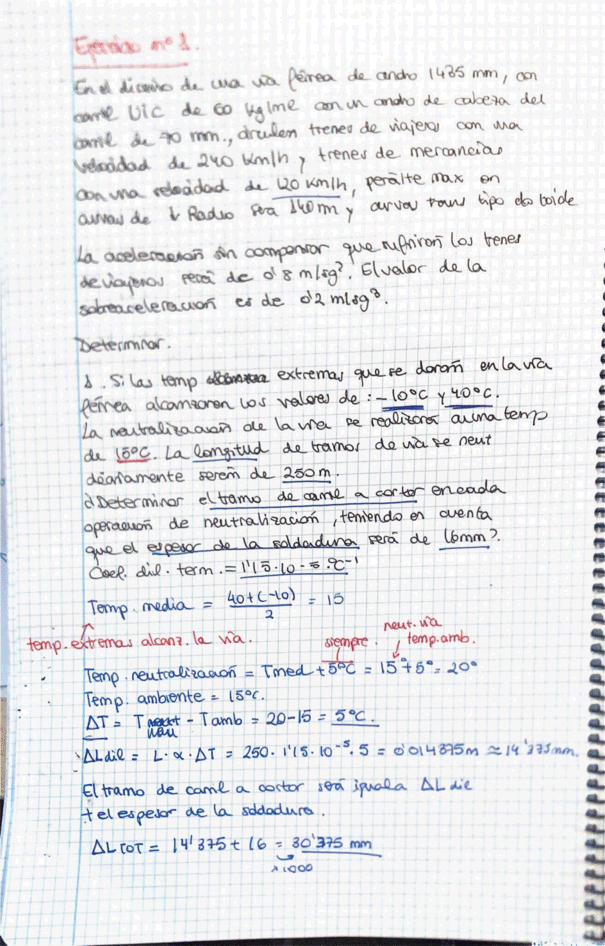 Ejercicio nº 1.
En el diseño de una vía férrea de ancho 1435 mm, con
carril UIC de 60 kg/ml con un ancho de cabeza del
carril de 70 mm., circulen trenes de viajeros con una
velocidad de 240 km/h y trenes de mercancías
con una velocidad de 120 km/h, peralte max en
curvas de ↓ Radio será 140m y curvas trans tipo clotoide
La aceleración sin compensar que sufrirán los trenes
de viajeros será de 0'8 m/sg². El valor de la
sobreaceleración es de 0'2 m/sg³.
Determinar.
1. Si las temp extremas que se darán en la vía
férrea alcanzaran los valores de: -10ºC y 40ºC.
La neutralización de la vía se realizará a una temp
de 15ºC. La longitud de tramos de vía se neut
diariamente serán de 250m.
Determinar el tramo de carril a cortar en cada
operación de neutralización, teniendo en cuenta
que el espesor de la soldadura será de 16mm?
Coef. dil. term. = 1'15·10-5·ºC-1
Temp. media = 40+(-10)/2 = 15
temp. extremas alcanz. la vía.
siempre.
neut. vía
temp. amb.
Temp. neutralización = Tmed + 5ºC = 15º+5º = 20º
Temp. ambiente = 15ºC.
ΔT = Tneu - Tamb = 20-15 = 5ºC.
ΔL dil = L·α·ΔT = 250·1'15·10-5·5 = 0'014375m ≈ 14'375mm.
El tramo de carril a cortar será igual a ΔL dil
+ el espesor de la soldadura.
ΔL TOT = 14'375 + 16 = 30'375 mm
x1000